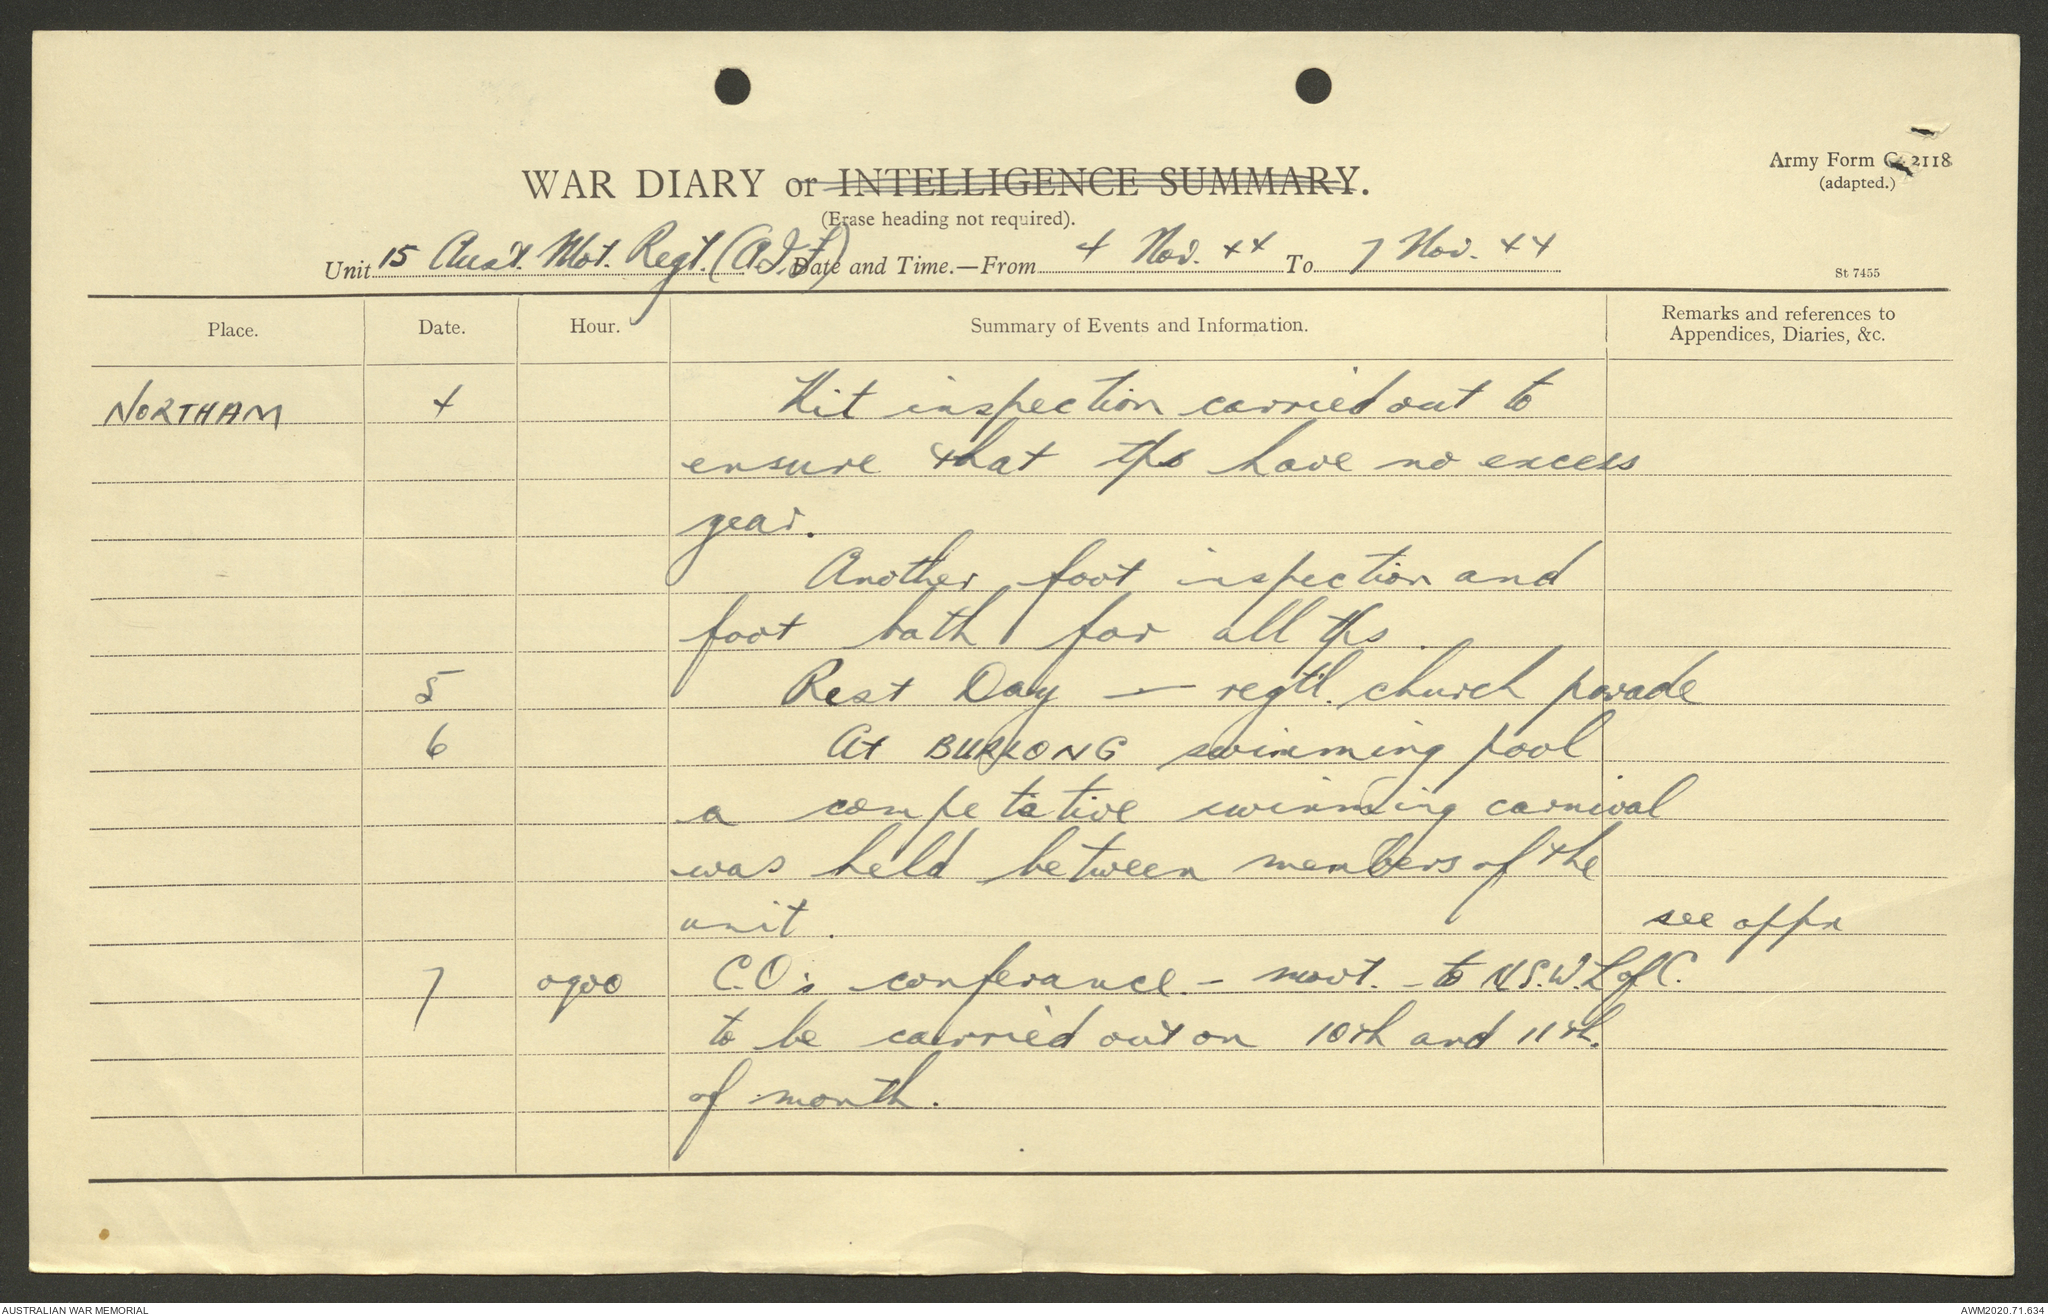 Army Form C. 2118
(adapted.)
WAR DIARY or INTELLIGENCE SUMMARY.
(Erase heading not required).
Unit 15 Aust. Mot. Regt. (A.I.F) Date and Time.—From 4 Nov. 44 To 7 Nov. 44
St 7455
Place. Date. Hour. Summary of Events and Information. Remarks and references to
Appendices, Diaries, &c.
NORTHAM 4 Kit inspection carried out to
ensure that tps have no excess
gear.
Another foot inspection and
foot bath for all tps.
5 Rest Day — regtl. church parade
6 At BURLONG swimming pool
a competative swimming carnival
was held between members of the
unit. see appx
7 0900 C.O's conferance - movt. - to N.S.W. L of C.
to be carried out on 10th and 11th.
of month.
AUSTRALIAN WAR MEMORIAL
AWM2020.71.634